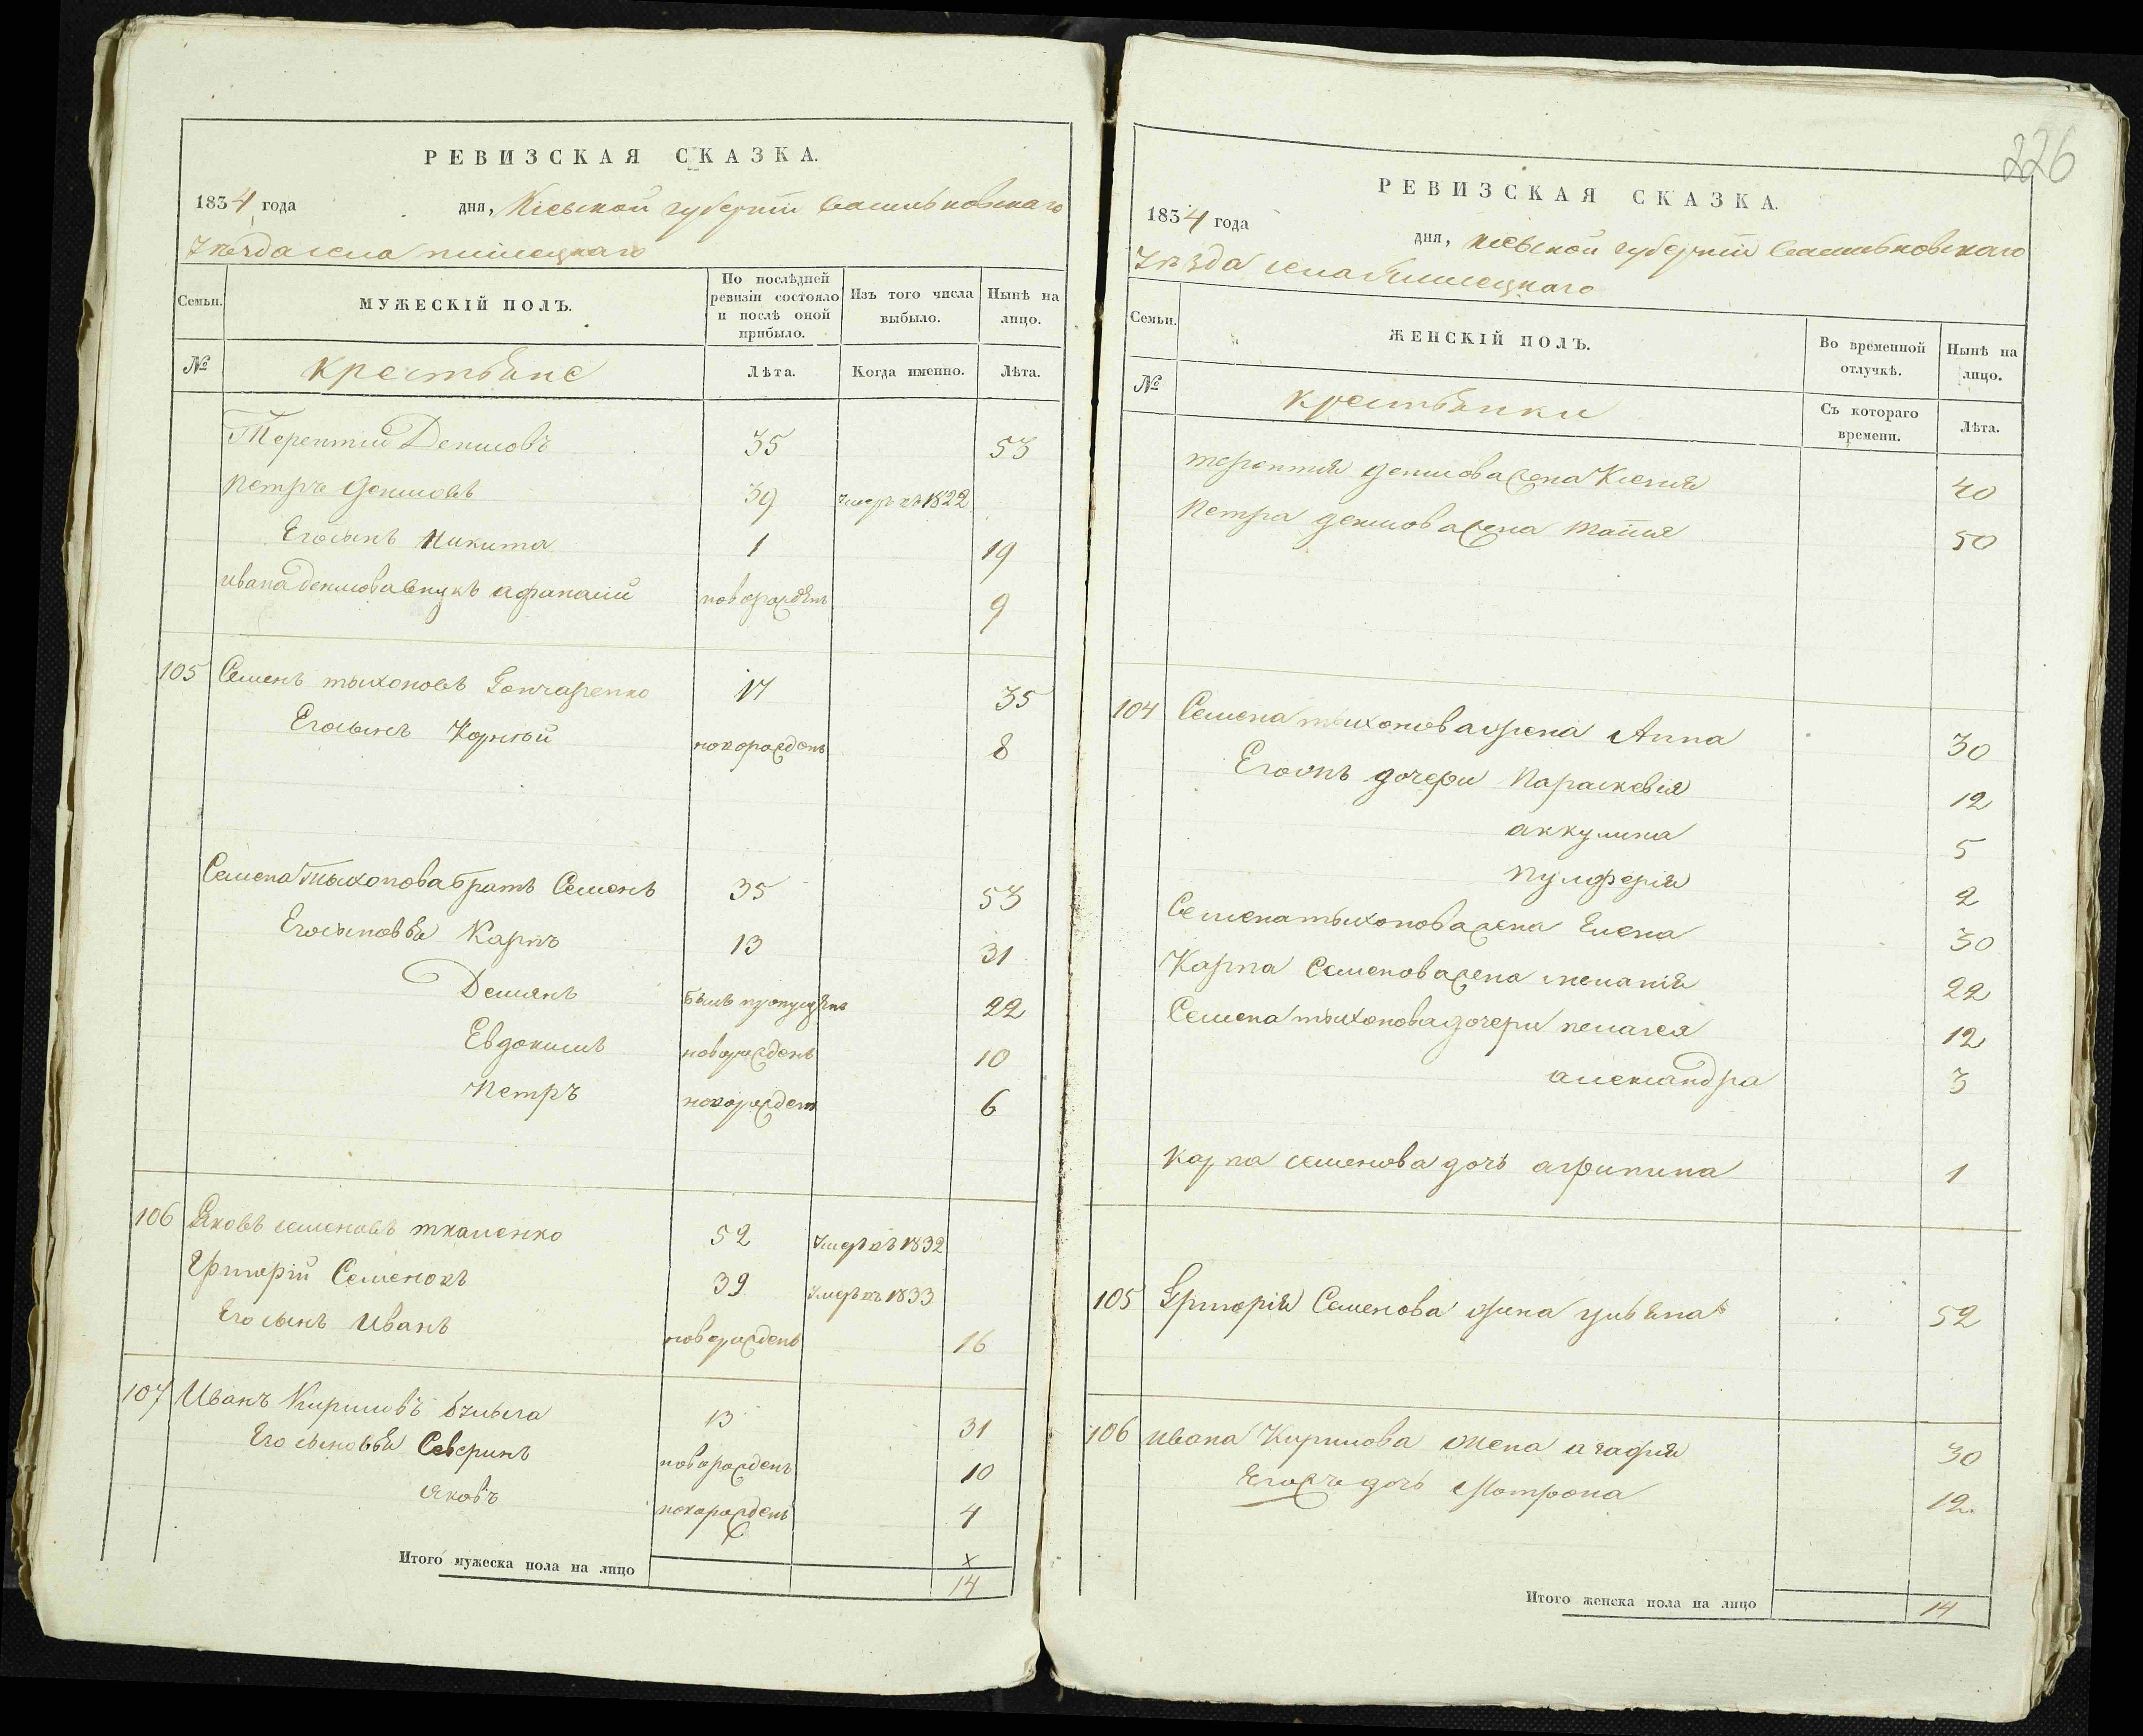 РЕВИЗСКАЯ СКАЗКА.
1834 года дня, Кіевской губерніи Васильковскаго
Уѣзда села
Семьи. МУЖЕСКІЙ ПОЛЪ. По послѣдней ревизіи состояло и послѣ оной прибыло. Изъ того числа выбыло. Нынѣ на лицо.
№ крестьяне Лѣта. Когда именно. Лѣта.
Терентій Денисовъ 35 53
Петръ Денисовъ 39 умеръ въ 1822
Его сынъ Никита 1 19
Ивана Денисова внукъ афанасій новорожденъ 9
105 Семенъ тыхоновъ Гончаренко 17 35
Его сынъ Корній новорожденъ 8
Семена Тыхонова братъ Семенъ 35 53
Его сыновья Карпъ 13 31
Демянъ былъ пропущенъ 22
Евдокимъ новорожденъ 10
Петръ новорожденъ 6
106 Яковъ семеновъ ткаченко 52 умеръ въ 1832
Григорій Семеновъ 39 умеръ въ 1833
Его сынъ Иванъ новорожденъ 16
107 Иванъ Кириловъ 13 31
Его сыновья Северинъ новорожденъ 10
Яковъ новорожденъ 4
Итого мужеска пола на лицо 14
226
РЕВИЗСКАЯ СКАЗКА.
1834 года дня, Кіевской губерніи Васильковскаго
Уѣзда села
Семьи. ЖЕНСКІЙ ПОЛЪ. Во временной отлучкѣ. Нынѣ на лицо.
№ крестьянки Съ котораго времени. Лѣта.
терентія денисова жена Ксенія 40
Петра денисова жена 50
104 Семена тыхонова жена Анна 30
Его дочери Параскевія 12
аккулина 5
пулферія 2
Семена тыхонова жена Елена 30
Карпа Семенова жена меланія 22
Семена тыхонова дочери пелагея 12
александра 3
Карпа семенова дочь агрипина 1
105 Григорія Семенова жена улѣяна 52
106 ивана Кирилова жена агафія 30
Его дочь Мотрона 12
Итого женска пола на лицо 14